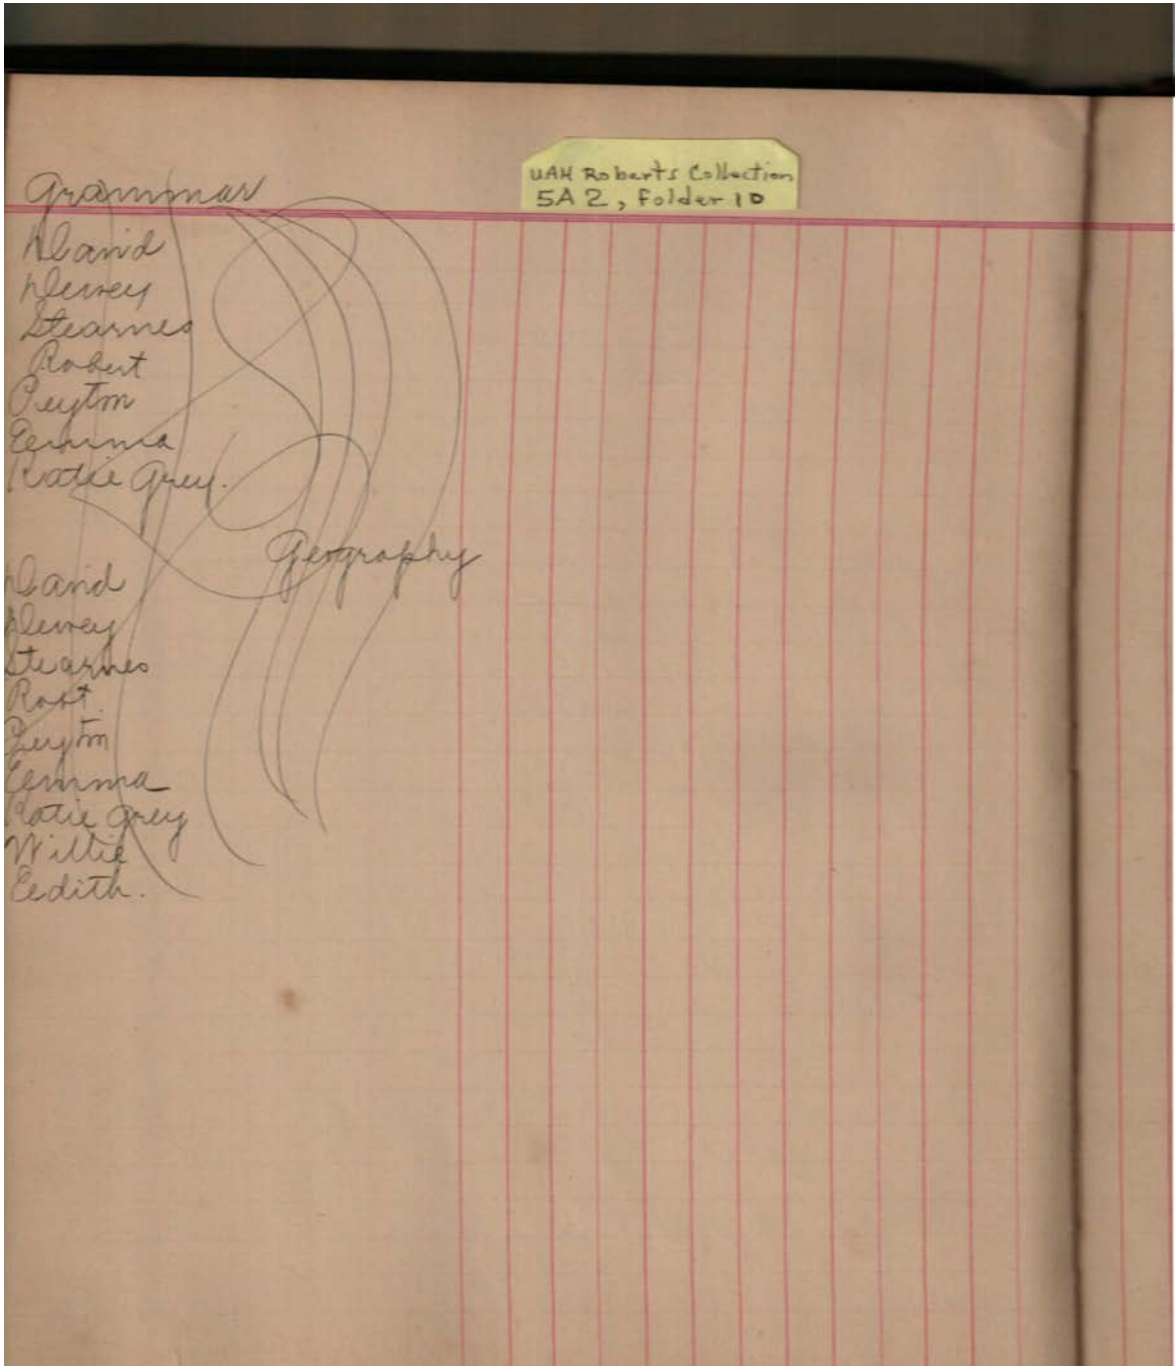 UAH Roberts Collection
5A2, Folder 10
Grammar
David
Dewey
Stearnes
Robert
Peyton
Emma
Katie Grey.
Geography
David
Dewey
Stearnes
Robt.
Peyton
Emma
Katie Grey
Willie
Edith.